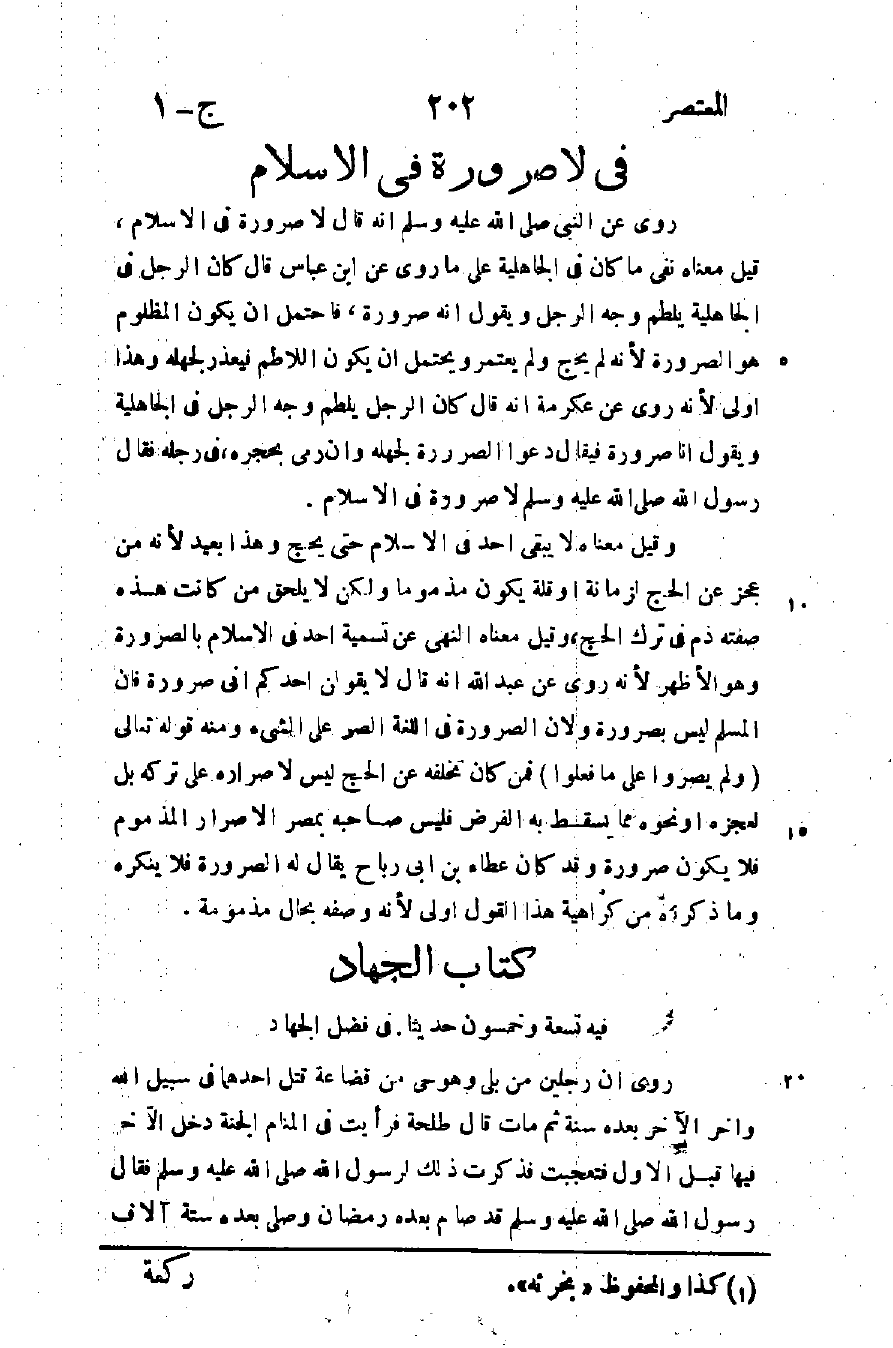 المعتصر ٢٠٢ ج - ١
فى لا صرورة فى الاسلام
روى عن النبى صلى الله عليه وسلم انه قال لا صرورة فى الاسلام ،
قيل معناه نفى ما كان فى الجاهلية على ما روى عن ابن عباس قال كان الرجل فى
الجاهلية يلطم وجه الرجل ويقول انه صرورة ، فاحتمل ان يكون المظلوم
هو الصرورة لأنه لم يحج ولم يعتمر ويحتمل ان يكون اللاطم فيعذر لجهله وهذا ٥
اولى لأنه روى عن عكرمة انه قال كان الرجل يلطم وجه الرجل فى الجاهلية
ويقول انا صرورة فيقال دعوا الصرورة لجهله وان رمى بحجره، فى رجله فقال
رسول الله صلى الله عليه وسلم لا صرورة فى الاسلام .
وقيل معناه لا يبقى احد فى الاسلام حتى يحج وهذا بعيد لأنه من
عجز عن الحج لزمانة او قلة يكون مذموما ولكن لا يلحق من كانت هذه ١٠
صفته ذم فى ترك الحج، وقيل معناه النهى عن تسمية احد فى الاسلام بالصرورة
وهو الأظهر لأنه روى عن عبد الله انه قال لا يقولن احدكم انى صرورة فان
المسلم ليس بصرورة ولان الصرورة فى اللغة الصر على الشىء ومنه قوله تعالى
( ولم يصروا على ما فعلوا ) فمن كان تخلفه عن الحج ليس لاصراره على تركه بل
لعجزه او نحوه مما يسقط به الفرض فليس صاحبه بمصر الاصرار المذموم ١٥
فلا يكون صرورة وقد كان عطاء بن ابى رباح يقال له الصرورة فلا ينكره
وما ذكرته من كراهية هذا القول اولى لأنه وصفه بحال مذمومة .
كتاب الجهاد
فيه تسعة وخمسون حديثا . فى فضل الجهاد
روى ان رجلين من بلى وهو حى من قضاعة قتل احدهما فى سبيل الله ٢٠
واخر الآخر بعده سنة ثم مات قال طلحة فرأيت فى المنام الجنة دخل الآخر
فيها قبل الاول فتعجبت فذكرت ذلك لرسول الله صلى الله عليه وسلم فقال
رسول الله صلى الله عليه وسلم قد صام بعده رمضان وصلى بعده ستة آلاف
ركعة
(١) كذا والمحفوظ « بخرئه».